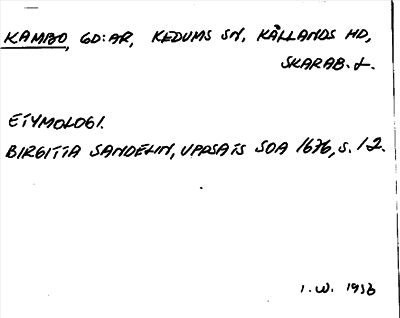 KAMBO, GD:AR, KEDUMS SN, KÅLLANDS HD,
SKARAB. L.
ETYMOLOGI.
BIRGITTA SANDELIN, UPPSATS SOA 1676, S. 12.
I. W. 1983